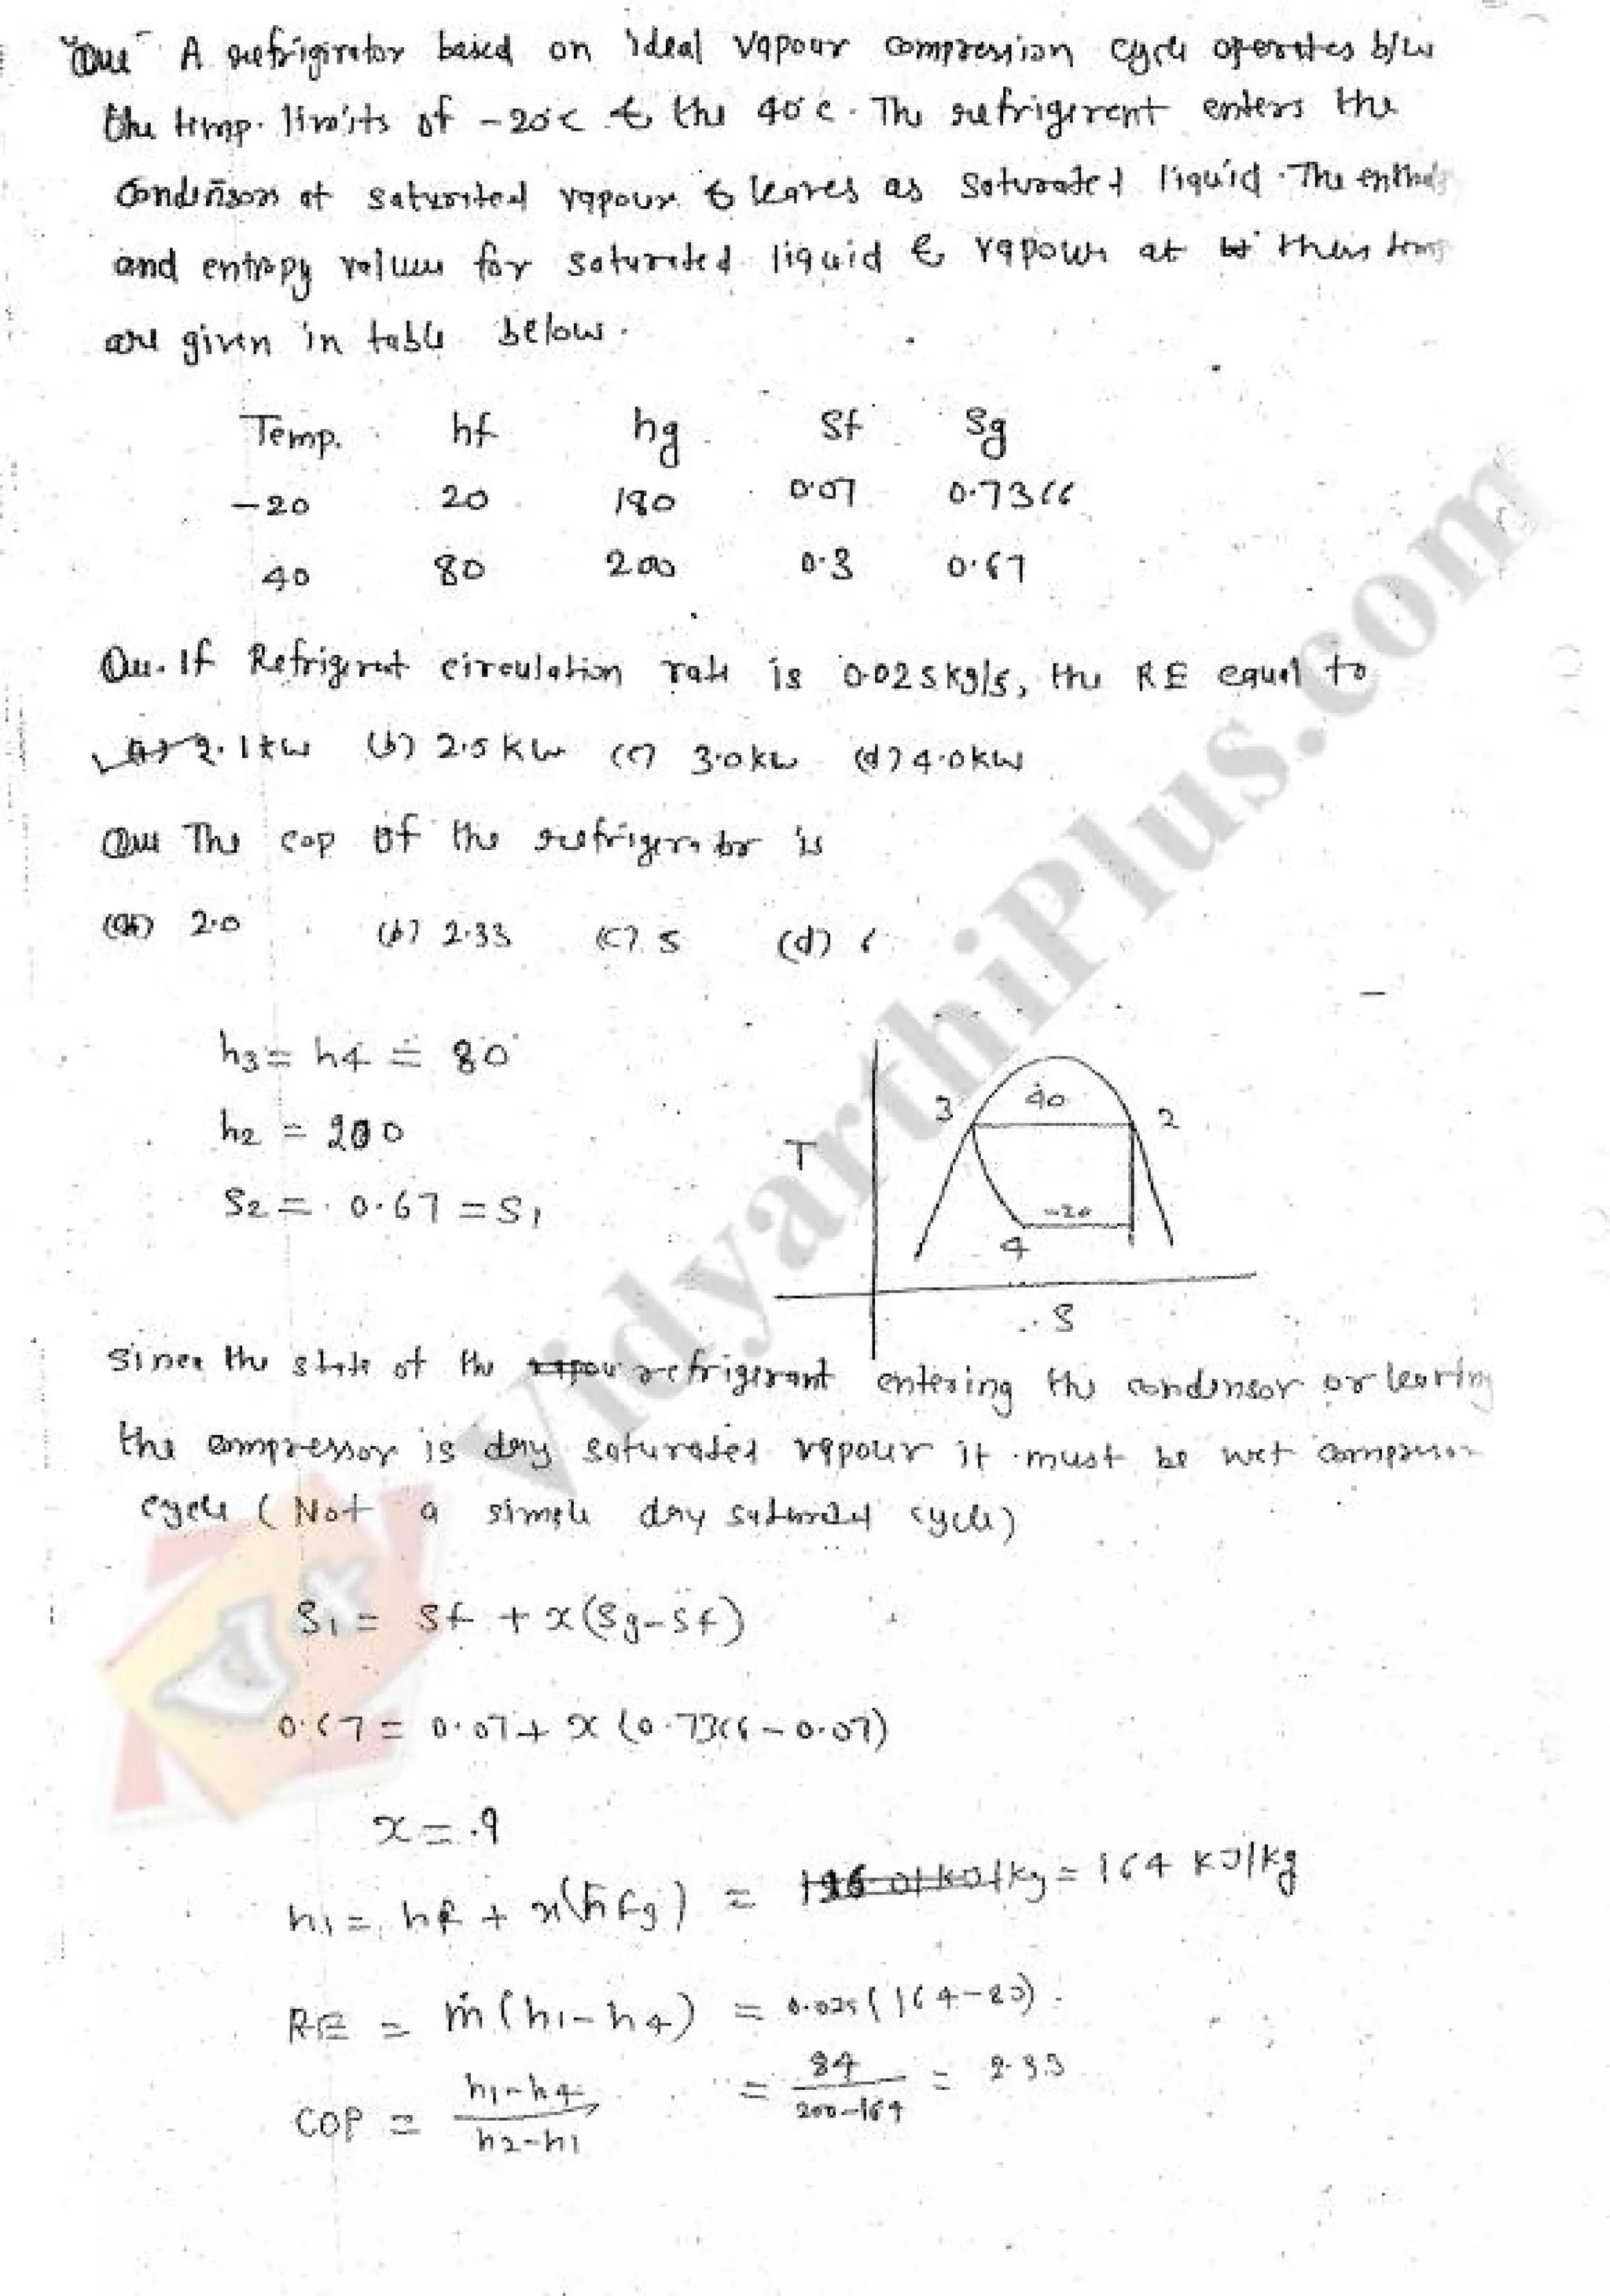 Que A refrigirator based on ideal vapour compression cycle operates b/w
the temp. limits of -20°c & the 40°c. The refrigerent enters the
Condensor at saturated vapour & leaves as saturated liquid. The
and entropy values for saturated liquid & vapour at these temp
are given in table below.
Temp. hf hg Sf Sg
-20 20 180 0.07 0.7366
40 80 200 0.3 0.67
Qu. If Refrigerent circulation rate is 0.025kg/s, the RE equal to
(a) 2.1kw (b) 2.5kw (c) 3.0kw (d) 4.0kw
Que The cop of the refrigerator is
(a) 2.0 (b) 2.33 (c) 5 (d) 6
h3 = h4 = 80
h2 = 200
S2 = 0.67 = S1
T
3 40 2
-20
4
S
Since the state of the refrigerant entering the condensor or leaving
the compressor is dry saturated vapour it must be wet
cycle (Not a simple dry saturated cycle)
S1 = Sf + x(Sg-Sf)
0.67 = 0.07 + x (0.7366 - 0.07)
x = .9
h1 = hf + x(hfg) = /kg = 164 KJ/kg
RE = ṁ(h1-h4) = 0.025(164-80)
COP = h1-h4 / h2-h1 = 84 / 200-164 = 2.33
VidyarthiPlus.com